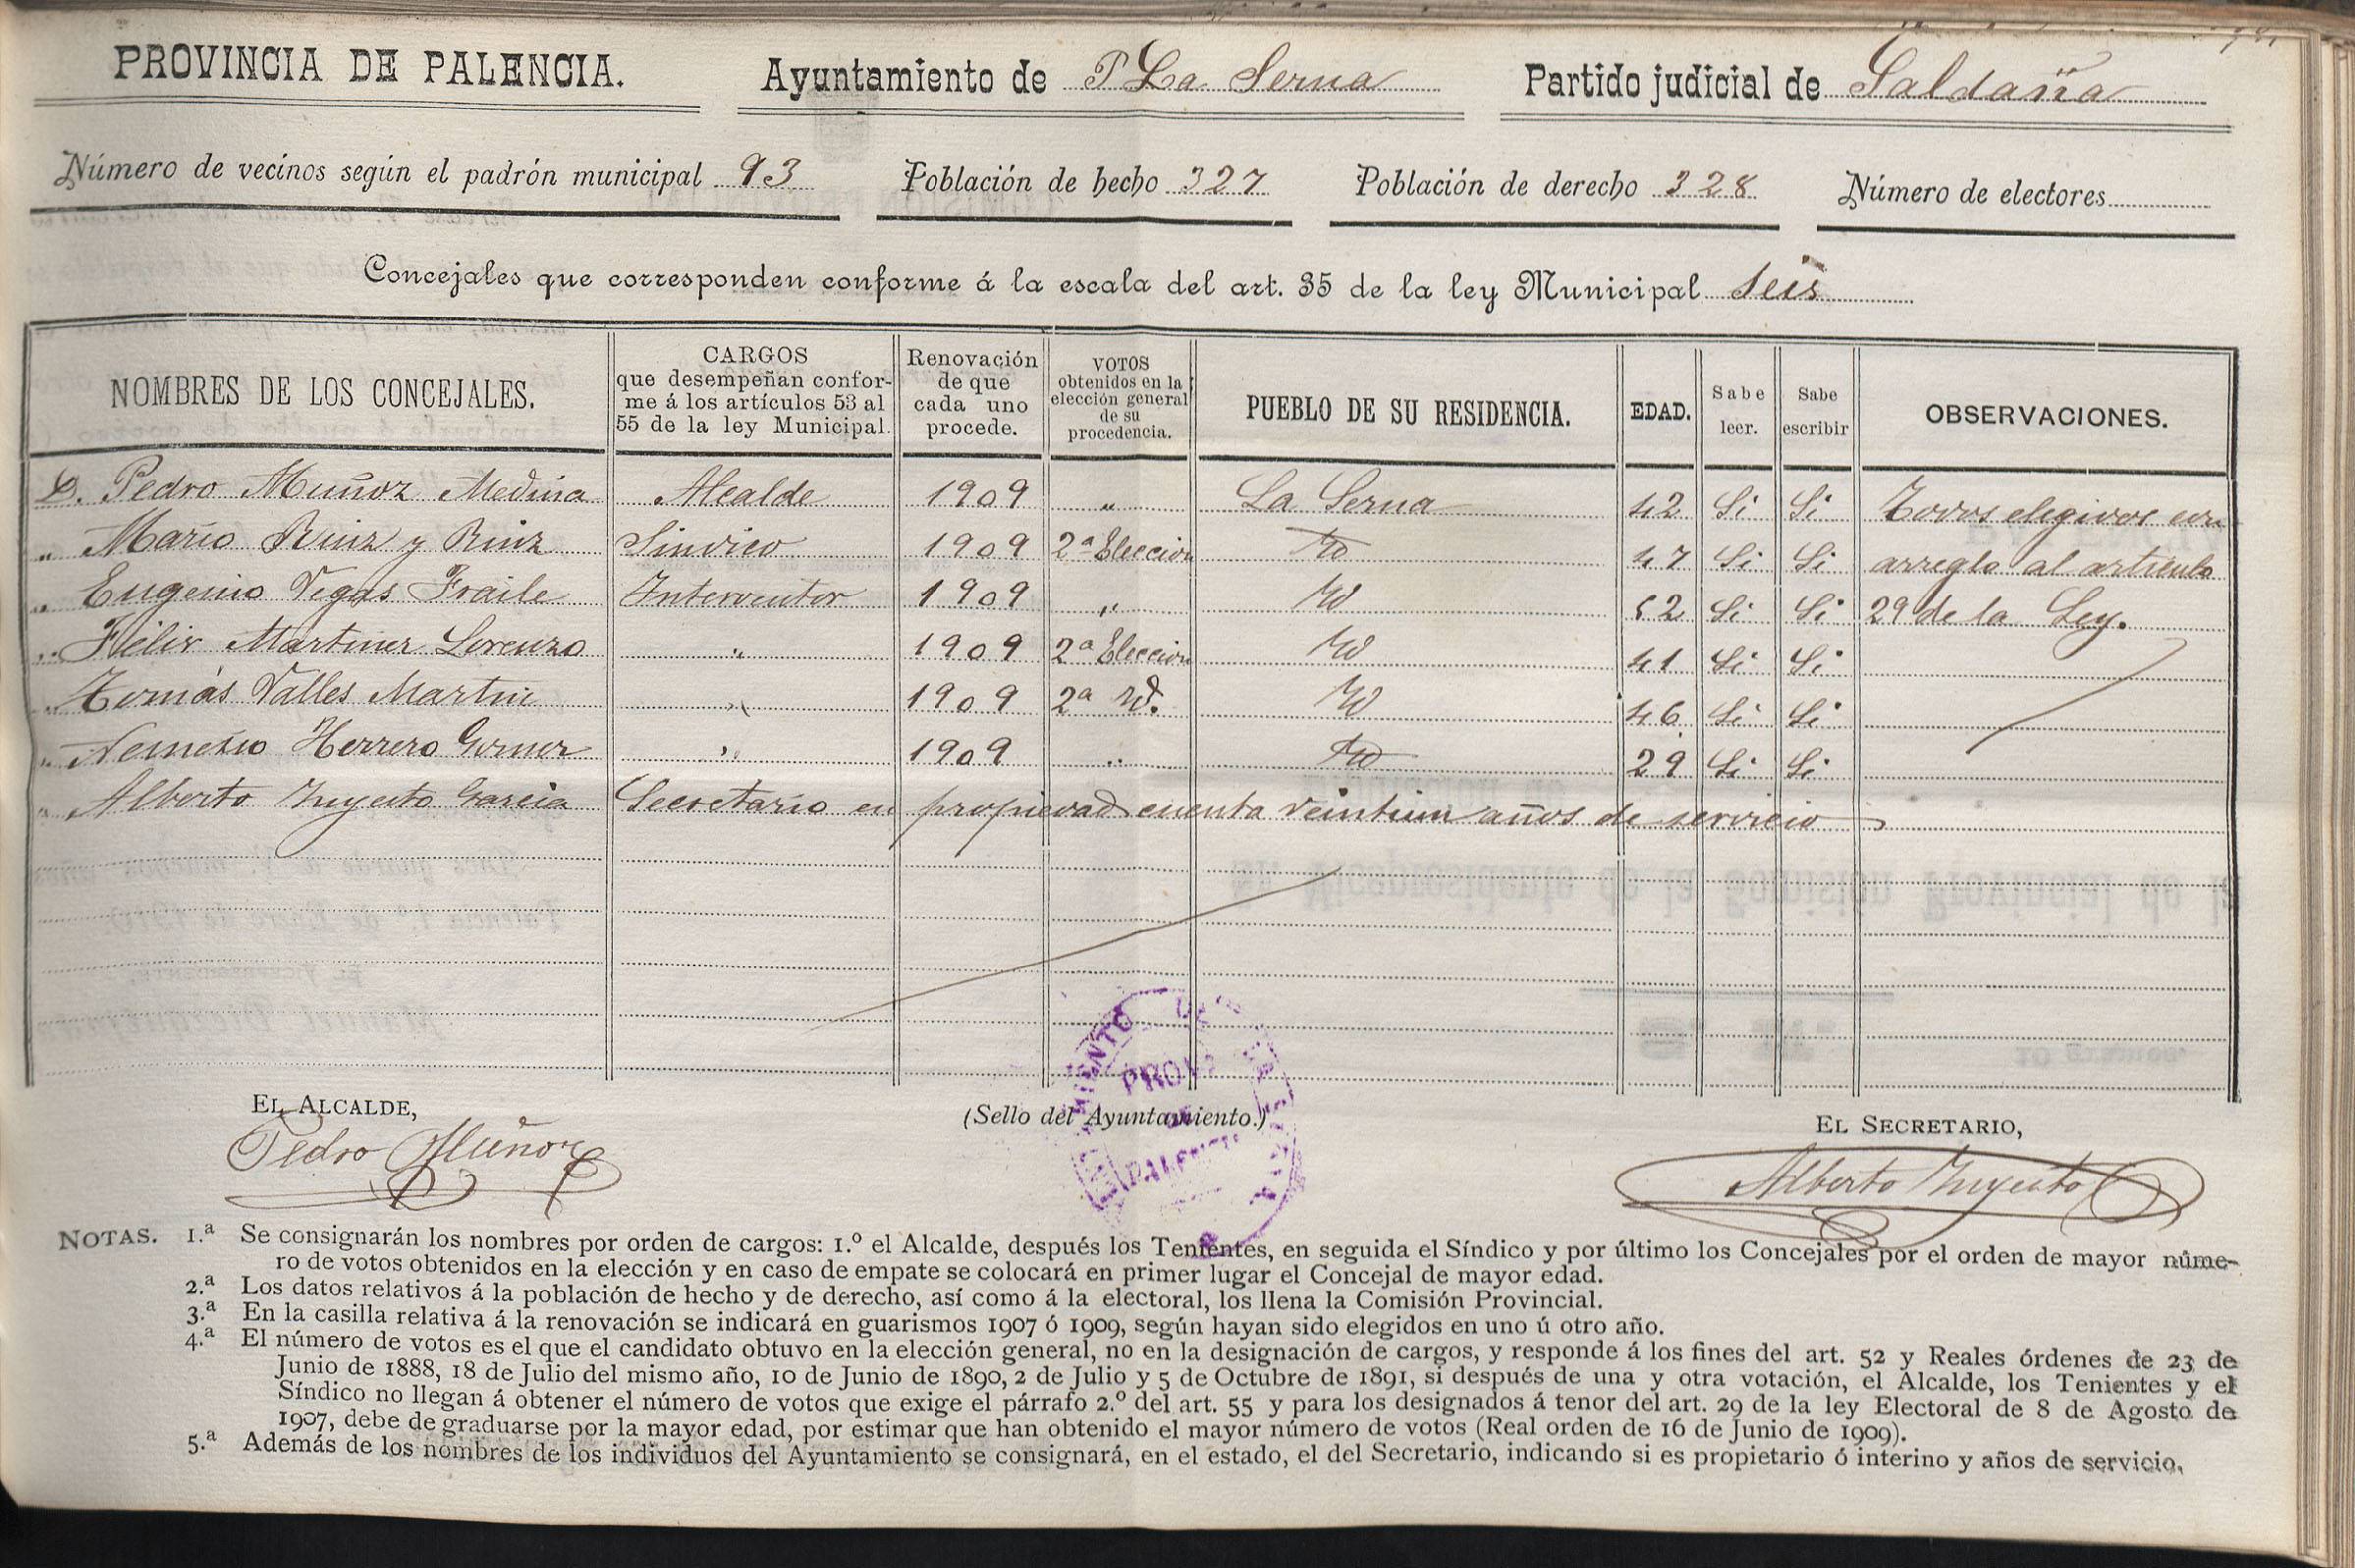 PROVINCIA DE PALENCIA. Ayuntamiento de La Serna Partido judicial de Saldaña
Número de vecinos según el padrón municipal 93 Población de hecho 327 Población de derecho 328 Número de electores
Concejales que corresponden conforme á la escala del art. 35 de la ley Municipal seis
NOMBRES DE LOS CONCEJALES. CARGOS que desempeñan confor- me á los artículos 53 al 55 de la ley Municipal. Renovación de que cada uno procede. VOTOS obtenidos en la elección general de su procedencia. PUEBLO DE SU RESIDENCIA. EDAD. Sabe leer. Sabe escribir OBSERVACIONES.
D. Pedro Muñoz Medina Alcalde 1909 " La Serna 42 Si Si Todos elegidos con
" Mario Ruiz y Ruiz Sindico 1909 2ª Eleccion Id 47 Si Si arreglo al articulo
" Eugenio Vegas Fraile Interventor 1909 " Id 52 Si Si 29 de la Ley.
" Felix Martinez Lorenzo " 1909 2ª Eleccion Id 41 Si Si
" Tomás Valles Martin " 1909 2ª Id. Id 46 Si Si
" Nemesio Herrero Gomez " 1909 " Id 29 Si Si
" Alberto Inyesto Garcia Secretario en propiedad cuenta veintiun años de servicio
EL ALCALDE, (Sello del Ayuntamiento.) EL SECRETARIO,
Pedro Muñoz Alberto Inyesto
PROV
DE
PALENCIA
NOTAS. 1.ª Se consignarán los nombres por orden de cargos: 1.º el Alcalde, después los Tenientes, en seguida el Síndico y por último los Concejales por el orden de mayor núme-
ro de votos obtenidos en la elección y en caso de empate se colocará en primer lugar el Concejal de mayor edad.
2.ª Los datos relativos á la población de hecho y de derecho, así como á la electoral, los llena la Comisión Provincial.
3.ª En la casilla relativa á la renovación se indicará en guarismos 1907 ó 1909, según hayan sido elegidos en uno ú otro año.
4.ª El número de votos es el que el candidato obtuvo en la elección general, no en la designación de cargos, y responde á los fines del art. 52 y Reales órdenes de 23 de
Junio de 1888, 18 de Julio del mismo año, 10 de Junio de 1890, 2 de Julio y 5 de Octubre de 1891, si después de una y otra votación, el Alcalde, los Tenientes y el
Síndico no llegan á obtener el número de votos que exige el párrafo 2.º del art. 55 y para los designados á tenor del art. 29 de la ley Electoral de 8 de Agosto de
1907, debe de graduarse por la mayor edad, por estimar que han obtenido el mayor número de votos (Real orden de 16 de Junio de 1909).
5.ª Además de los nombres de los individuos del Ayuntamiento se consignará, en el estado, el del Secretario, indicando si es propietario ó interino y años de servicio.